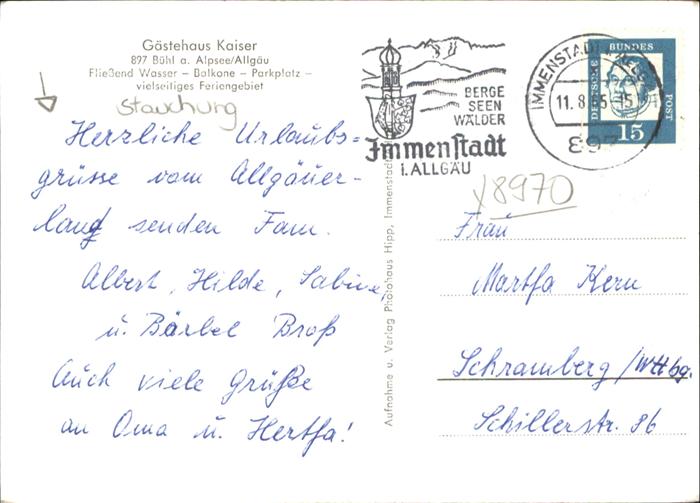 Gästehaus Kaiser
897 Bühl a. Alpsee/Allgäu
Fließend Wasser – Balkone – Parkplatz –
vielseitiges Feriengebiet
stauchung
Herzliche Urlaubs=
grüsse vom Allgäuer-
land senden Fam.
Albert, Hilde, Sabine,
u. Bärbel Broß
Auch viele Grüße
an Oma u. Hertha!
Aufnahme u. Verlag Photohaus Hipp, Immenstadt
BERGE
SEEN
WÄLDER
Immenstadt
i. ALLGÄU
IMMENSTADT
11.8.65-15
897
DEUTSCHE
BUNDES
POST
15
8970
Frau
Martha Kern
Schramberg/Wttbg.
Schillerstr. 86